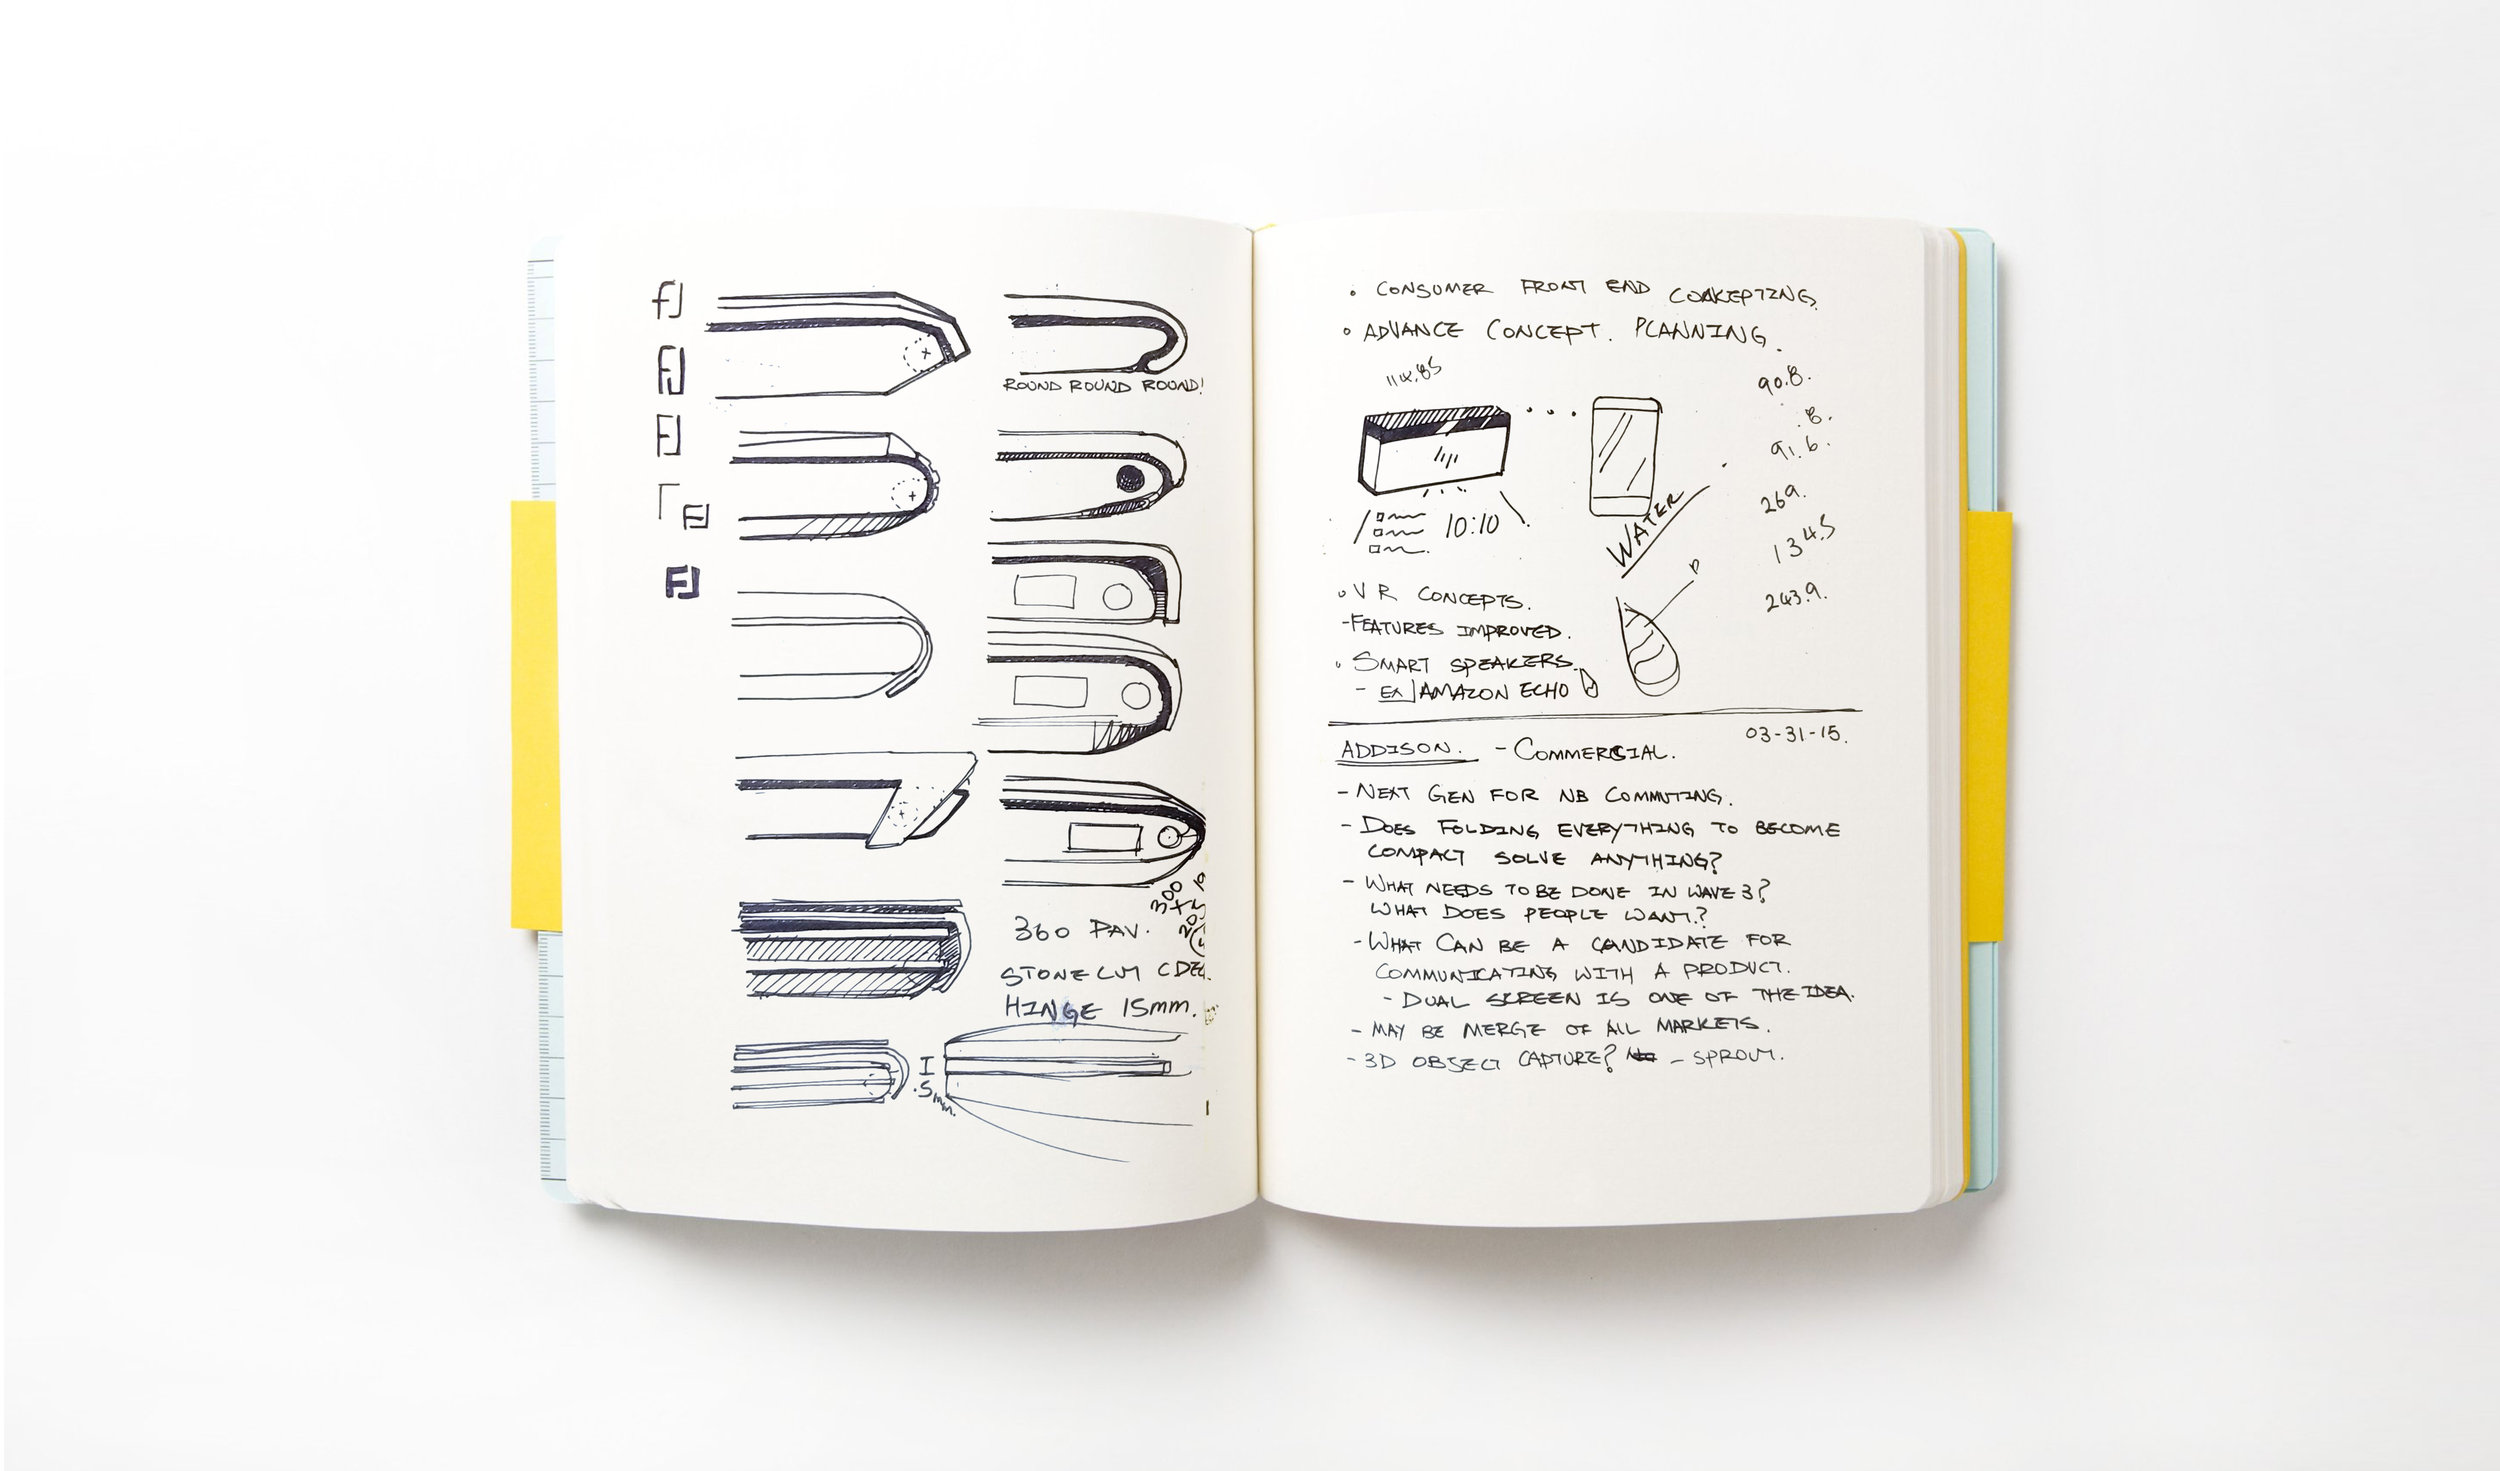 ROUND ROUND ROUND!
300
+
360 PAV.
STONE CM
HINGE 15mm.
I
.5mm.
• CONSUMER FRONT END CONCEPTING.
• ADVANCE CONCEPT. PLANNING.
114.85
90.8.
.8.
91.6.
269.
134.5
243.9.
10:10
WATER
• VR CONCEPTS.
- FEATURES IMPROVED.
• SMART SPEAKERS.
- EX] AMAZON ECHO
03-31-15.
ADDISON. - COMMERCIAL.
- NEXT GEN FOR NB COMMUTING.
- DOES FOLDING EVERYTHING TO BECOME
COMPACT SOLVE ANYTHING?
- WHAT NEEDS TO BE DONE IN WAVE 3?
WHAT DOES PEOPLE WANT?
- WHAT CAN BE A CANDIDATE FOR
COMMUNICATING WITH A PRODUCT.
- DUAL SCREEN IS ONE OF THE IDEA.
- MAY BE MERGE OF ALL MARKETS.
- 3D OBJECT CAPTURE? - SPROUT.